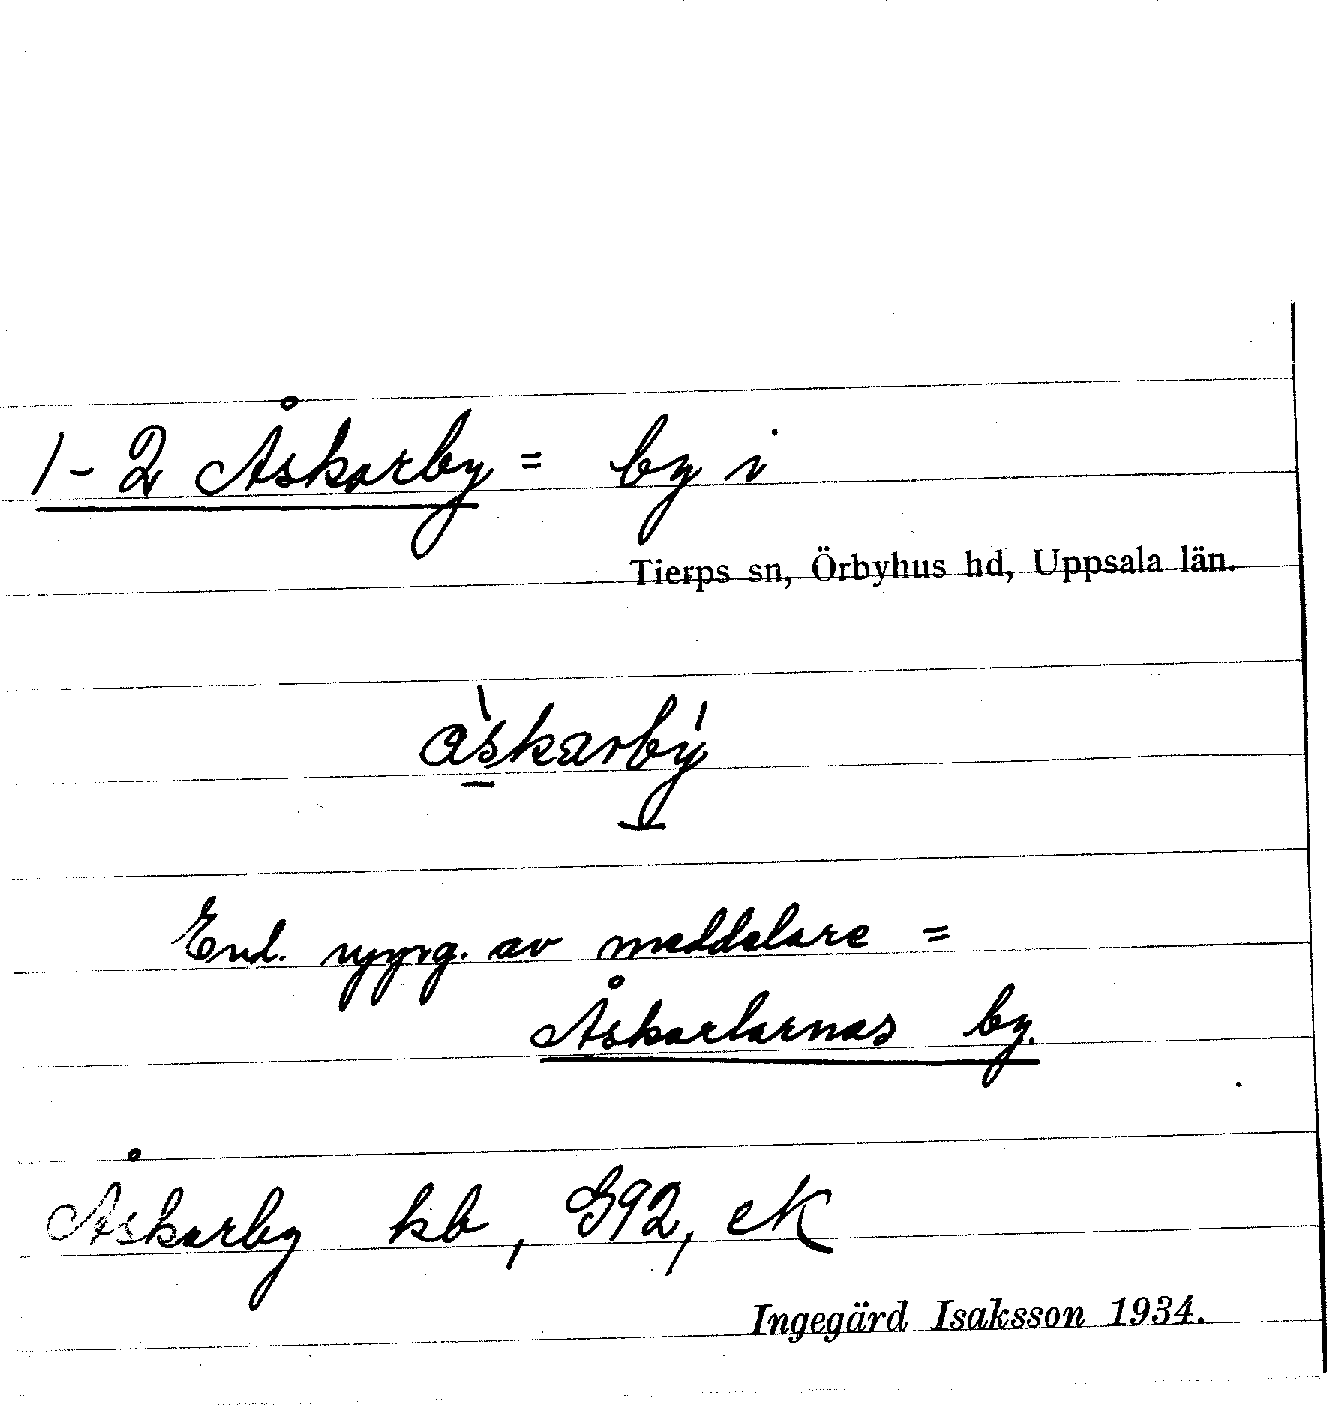 1-2 Åskarby = by i
Tierps sn, Örbyhus hd, Uppsala län.
àskarbý
End. av meddelare =
Åskarlarnas by.
Åskarby kb, G92, eK
Ingegärd Isaksson 1934.